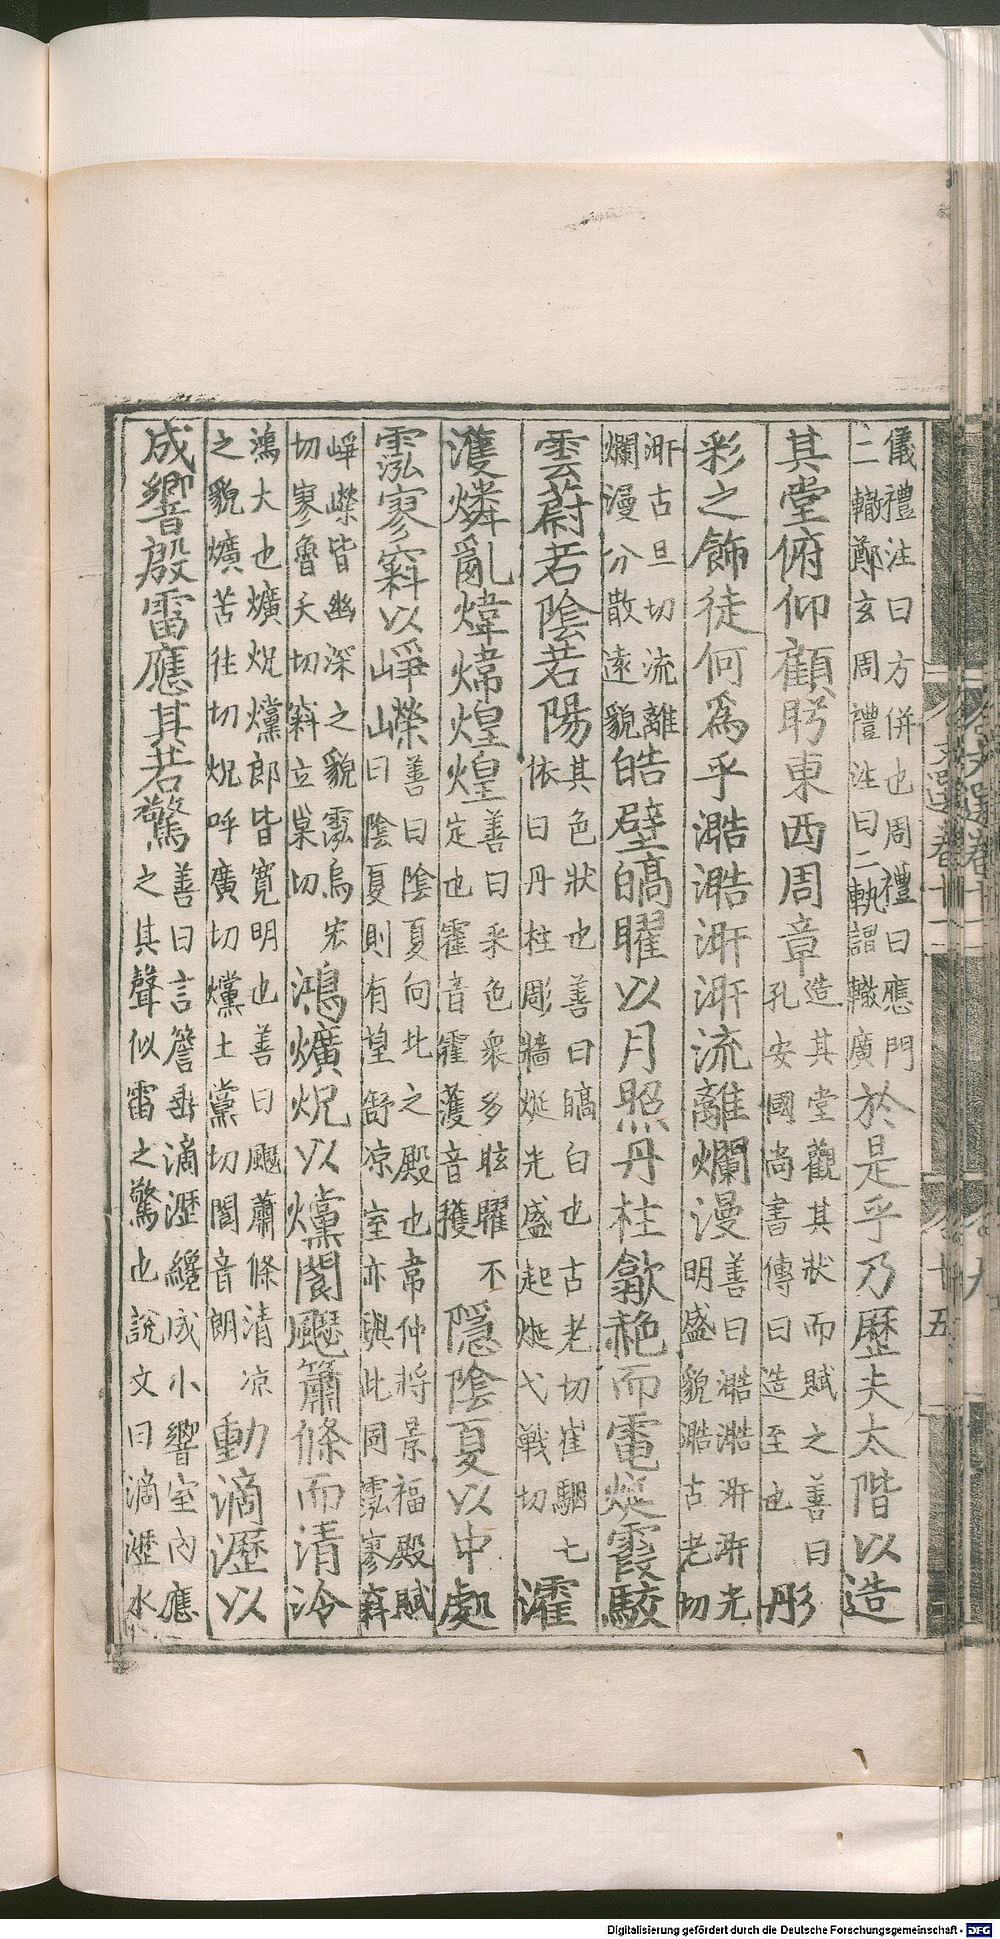 儀禮注曰方併也周禮曰應門
二轍鄭玄周禮注曰二軌謂轍廣
於是乎乃歷夫太階以造
其堂俯仰顧眄東西周章
造其堂觀其狀而賦之善曰
孔安國尚書傳曰造至也
彤
彩之飾徒何為乎澔澔涆涆流離爛漫
善曰澔澔涆涆光
明盛貌澔古老切
涆古旦切流離
爛漫分散遠貌
皓壁皜曜以月照丹柱歙赩而電烻霞駮
雲蔚若陰若陽
其色狀也善曰皜白也古老切崔駰七
依曰丹柱彫牆烻光盛起烻弋戰切
濩
濩燐亂煒煒煌煌
善曰采色衆多眩曜不
定也霍音霍濩音獲
隱陰夏以中處
霐寥窲以崢嶸
善曰陰夏向北之殿也韋仲將景福殿賦
曰陰夏則有望舒凉室亦與此同霐寥窲
崢嶸皆幽深之貌霐烏宏
切寥魯天切窲立巢切
鴻爌炾以爣閬飋簫條而清泠
鴻大也爌炾爣郎皆寬明也善曰飋蕭條清凉
之貌爌苦往切炾呼廣切爣土黨切閬音朗
動滴瀝以
成響殷雷應其若驚
善曰言簷垂滴瀝纔成小響室內應
之其聲似雷之驚也說文曰滴瀝水
文選卷十一
廿五
Digitalisierung gefördert durch die Deutsche Forschungsgemeinschaft - DFG